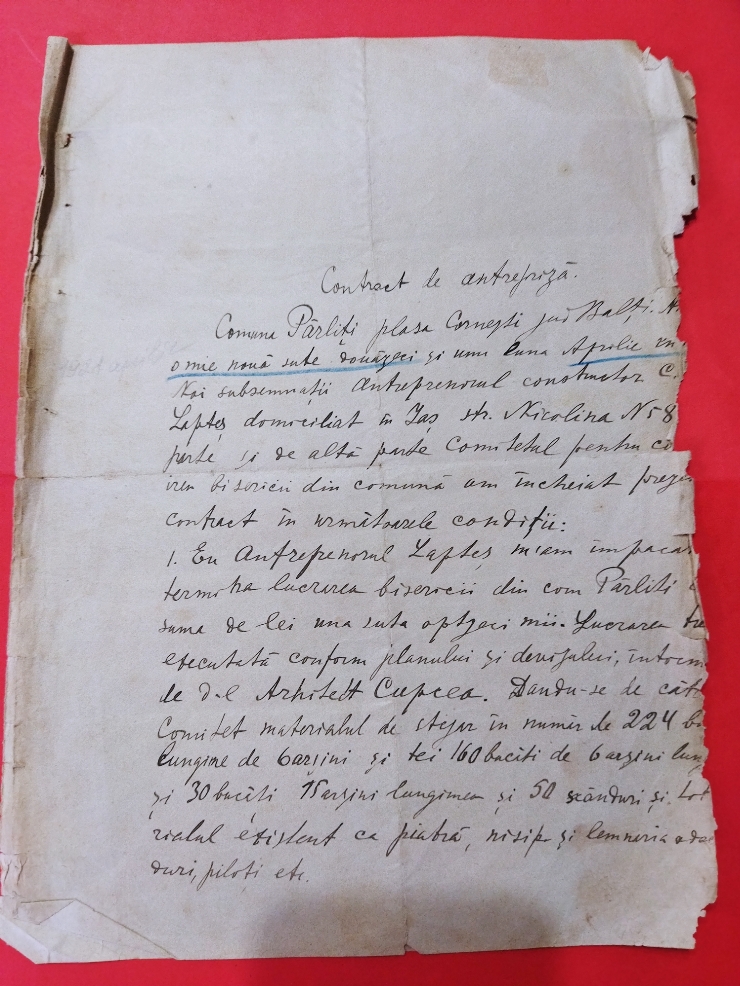 Contract de antrepriză.
Comuna Pârliți plasa Cornești jud Balți.
o mie nouă sute douăzeci și unu luna Aprilie
Noi subsemnații antreprenorul constructor C.
Lapteș domiciliat în Iaș str. Nicolina N 58
parte și de altă parte Comitetul pentru co
irea bisericii din comună am încheiat prezen
contract în următoarele condiții:
1. Eu Antreprenorul Lapteș m'am împacat
termina lucrarea bisericii din com Pârliti
suma de lei una suta optzeci mii. Lucrarea tre
executată conform planului și devizului, întocm
de d-l Arhitect Cupcea. Dandu-se de cătr
Comitet materialul de stejar în număr de 224 bu
lungime de 6 arșini și tei 160 bucăti de 6 arșini lung
și 30 bucăți 15 arșini lungimea și 50 scânduri și. Tot
rialul existent ca piatră, nisip și lemneria
duri, piloti etc.